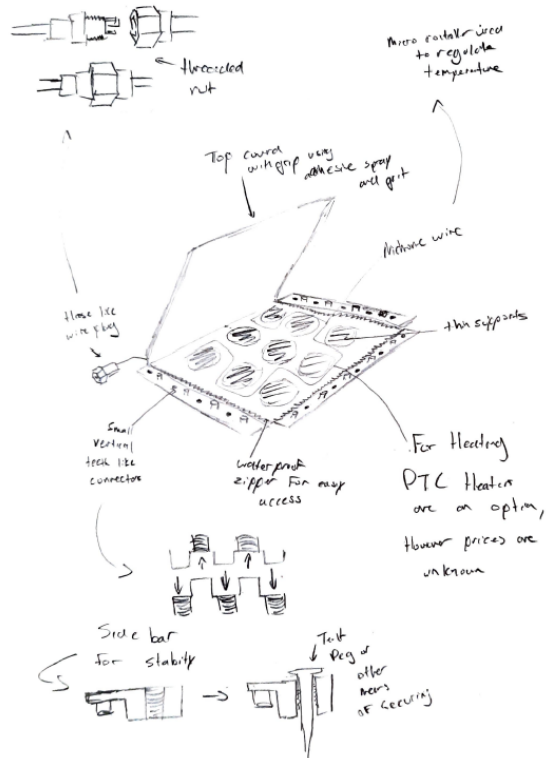 threaded
nut
Micro controller used
to regulate
temperature
Top coverd
with grip using
adhesive spray
and grit
Nichrome wire
Hose like
wire plug
thin supports
Small
vertical
teeth like
connectors
waterproof
zipper for easy
access
For Heating
PTC Heaters
are an option,
However prices are
unknown
Side bar
for stability
Tent
Peg or
other
means
of securing